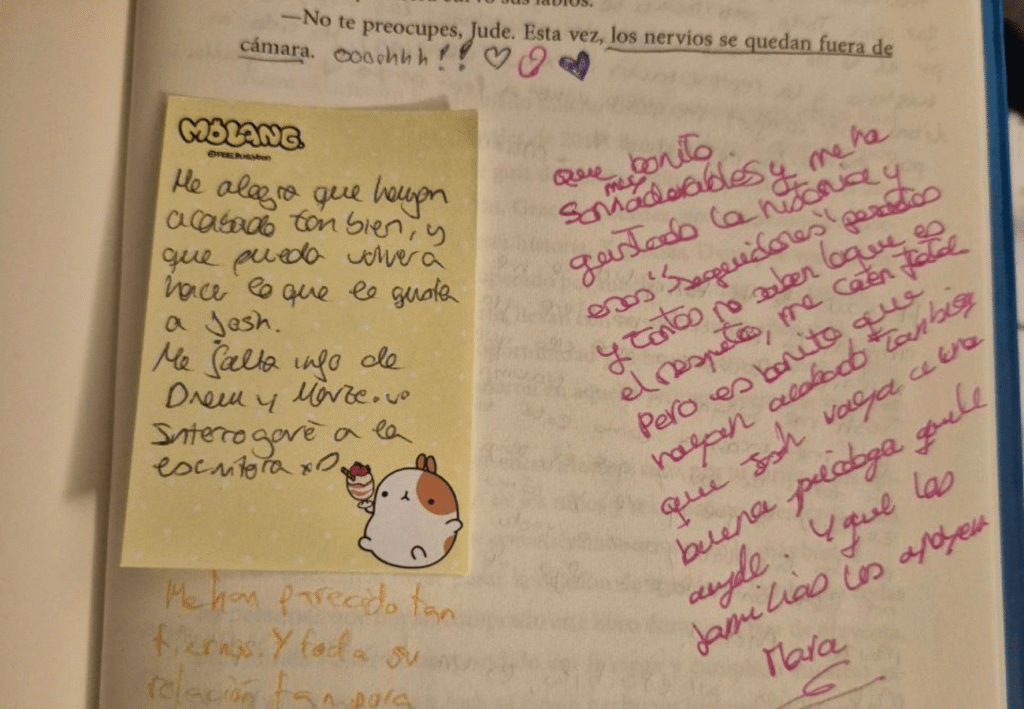 —No te preocupes, Jude. Esta vez, los nervios se quedan fuera de
cámara. ooohhh!!
MOLANG
Me alegra que hayan
acabado tan bien, y
que pueda volver a
hace lo que le gusta
a Josh.
Me falta info de
Drew y
Interrogaré a la
escritora xD
Me han parecido tan
tiernos. Y toda su
relación tan
que bonito
son más adorables y me ha
gustado la historia y
esos "seguidores" pesados
y tontos no saben lo que es
el respeto, me caen fatal
Pero es bonito que
hayan acabado tan bien
que Josh vaya a una
buena psicóloga que le
ayude y que las
familias los apoyen
Mara